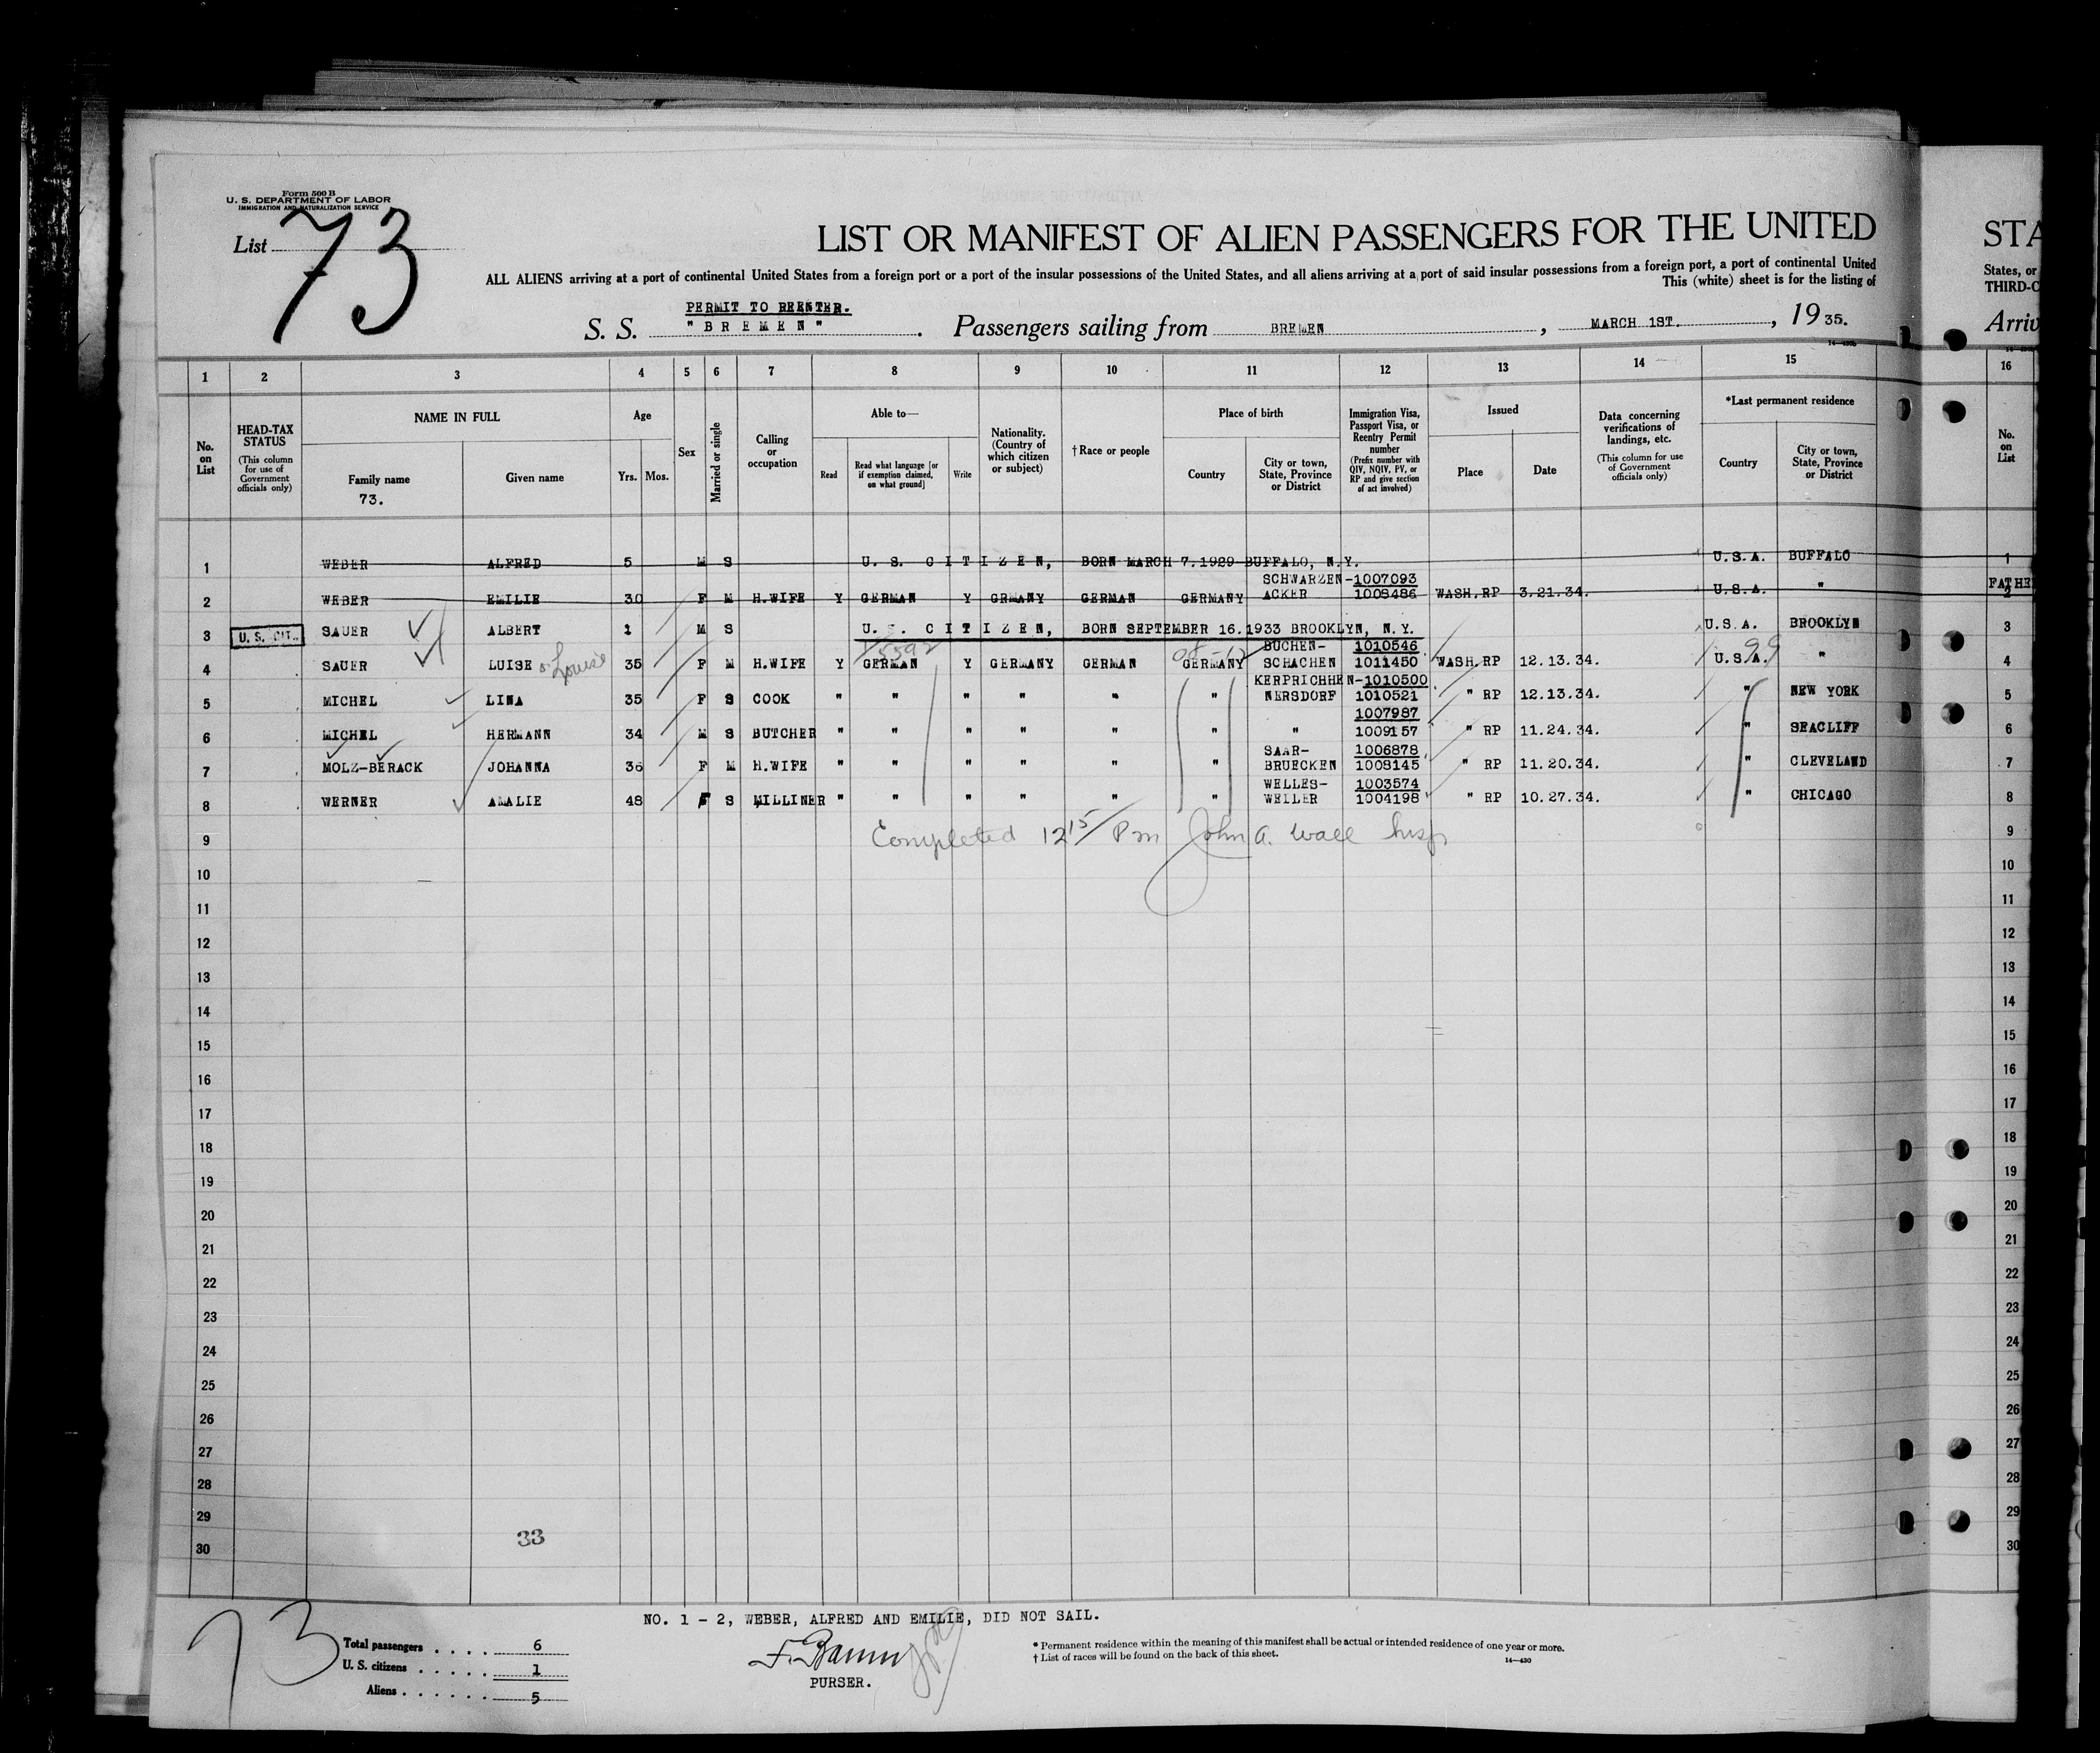 Form 500 B
U. S. DEPARTMENT OF LABOR
IMMIGRATION AND NATURALIZATION SERVICE
List 73
LIST OR MANIFEST OF ALIEN PASSENGERS FOR THE UNITED
STA
ALL ALIENS arriving at a port of continental United States from a foreign port or a port of the insular possessions of the United States, and all aliens arriving at a port of said insular possessions from a foreign port, a port of continental United
States, or
This (white) sheet is for the listing of
THIRD-C
PERMIT TO REENTER.
S. S. "BREMEN". Passengers sailing from BREMEN, MARCH 1ST., 1935.
Arriv
1 2 3 4 5 6 7 8 9 10 11 12 13 14 15 16
No. on List
HEAD-TAX STATUS
(This column for use of Government officials only)
NAME IN FULL
Family name
73.
Given name
Age
Yrs. Mos.
Sex
Married or single
Calling or occupation
Able to—
Read
Read what language [or if exemption claimed, on what ground]
Write
Nationality. (Country of which citizen or subject)
†Race or people
Place of birth
Country
City or town, State, Province or District
Immigration Visa, Passport Visa, or Reentry Permit number
(Prefix number with QIV, NQIV, PV, or RP and give section of act involved)
Issued
Place
Date
Data concerning verifications of landings, etc.
(This column for use of Government officials only)
*Last permanent residence
Country
City or town, State, Province or District
No. on List
1 WEBER ALFRED 5 M S U. S. CITIZEN, BORN MARCH 7.1929 BUFFALO, N.Y. U.S.A. BUFFALO 1
SCHWARZEN- 1007093 FATHE
2 WEBER EMILIE 30 F M H.WIFE Y GERMAN Y GRMANY GERMAN GERMANY ACKER 1008486 WASH.RP 3.21.34. U.S.A. " 2
3 U. S. CIT. SAUER ALBERT 1 M S U. S. CITIZEN, BORN SEPTEMBER 16.1933 BROOKLYN, N.Y. U.S.A. BROOKLYN 3
BUCHEN- 1010546
4 SAUER LUISE or Louise 35 F M H.WIFE Y GERMAN Y GERMANY GERMAN GERMANY SCHACHEN 1011450 WASH.RP 12.13.34. U.S.A. 99 " 4
KERPRICHHEN- 1010500
5 MICHEL LINA 35 F S COOK " " " " " " NERSDORF 1010521 " RP 12.13.34. " NEW YORK 5
1007987
6 MICHEL HERMANN 34 M S BUTCHER " " " " " " " 1009157 " RP 11.24.34. " SEACLIFF 6
SAAR- 1006878
7 MOLZ-BERACK JOHANNA 36 F M H.WIFE " " " " " " BRUECKEN 1008145 " RP 11.20.34. " CLEVELAND 7
WELLES- 1003574
8 WERNER AMALIE 48 F S MILLINER " " " " " " WEILLER 1004198 " RP 10.27.34. " CHICAGO 8
9 Completed 12 15 Pm John A. Wall Insp 9
10 10
11 11
12 12
13 13
14 14
15 15
16 16
17 17
18 18
19 19
20 20
21 21
22 22
23 23
24 24
25 25
26 26
27 27
28 28
29 29
33
30 30
NO. 1 - 2, WEBER, ALFRED AND EMILIE, DID NOT SAIL.
73
Total passengers . . . . 6
U. S. citizens . . . . . 1
Aliens . . . . . . 5
PURSER.
* Permanent residence within the meaning of this manifest shall be actual or intended residence of one year or more.
† List of races will be found on the back of this sheet.
14—430